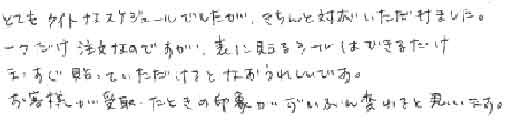 とてもタイトなスケジュールでしたが、きちんと対応いただけました。
一つだけ注文なのですが、表に見えるシールはできるだけ
まっすぐ貼っていただけるとなおうれしいです。
お客様が受取ったときの印象がずいぶん変わると思います。